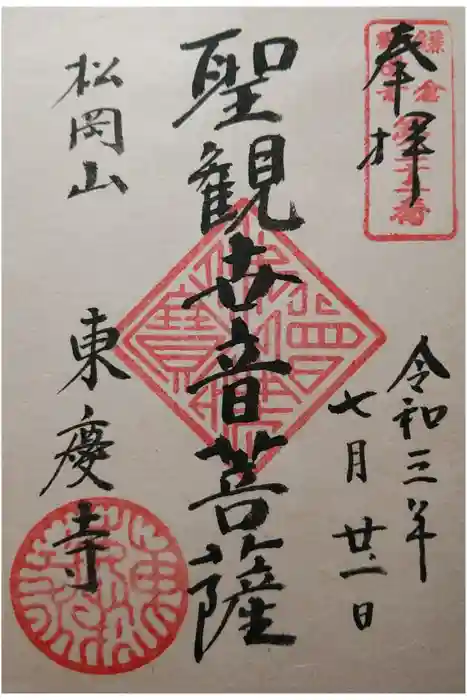 奉拝
鎌倉
第三十二番
令和三年
七月廿一日
聖観世音菩薩
松岡山
東慶寺